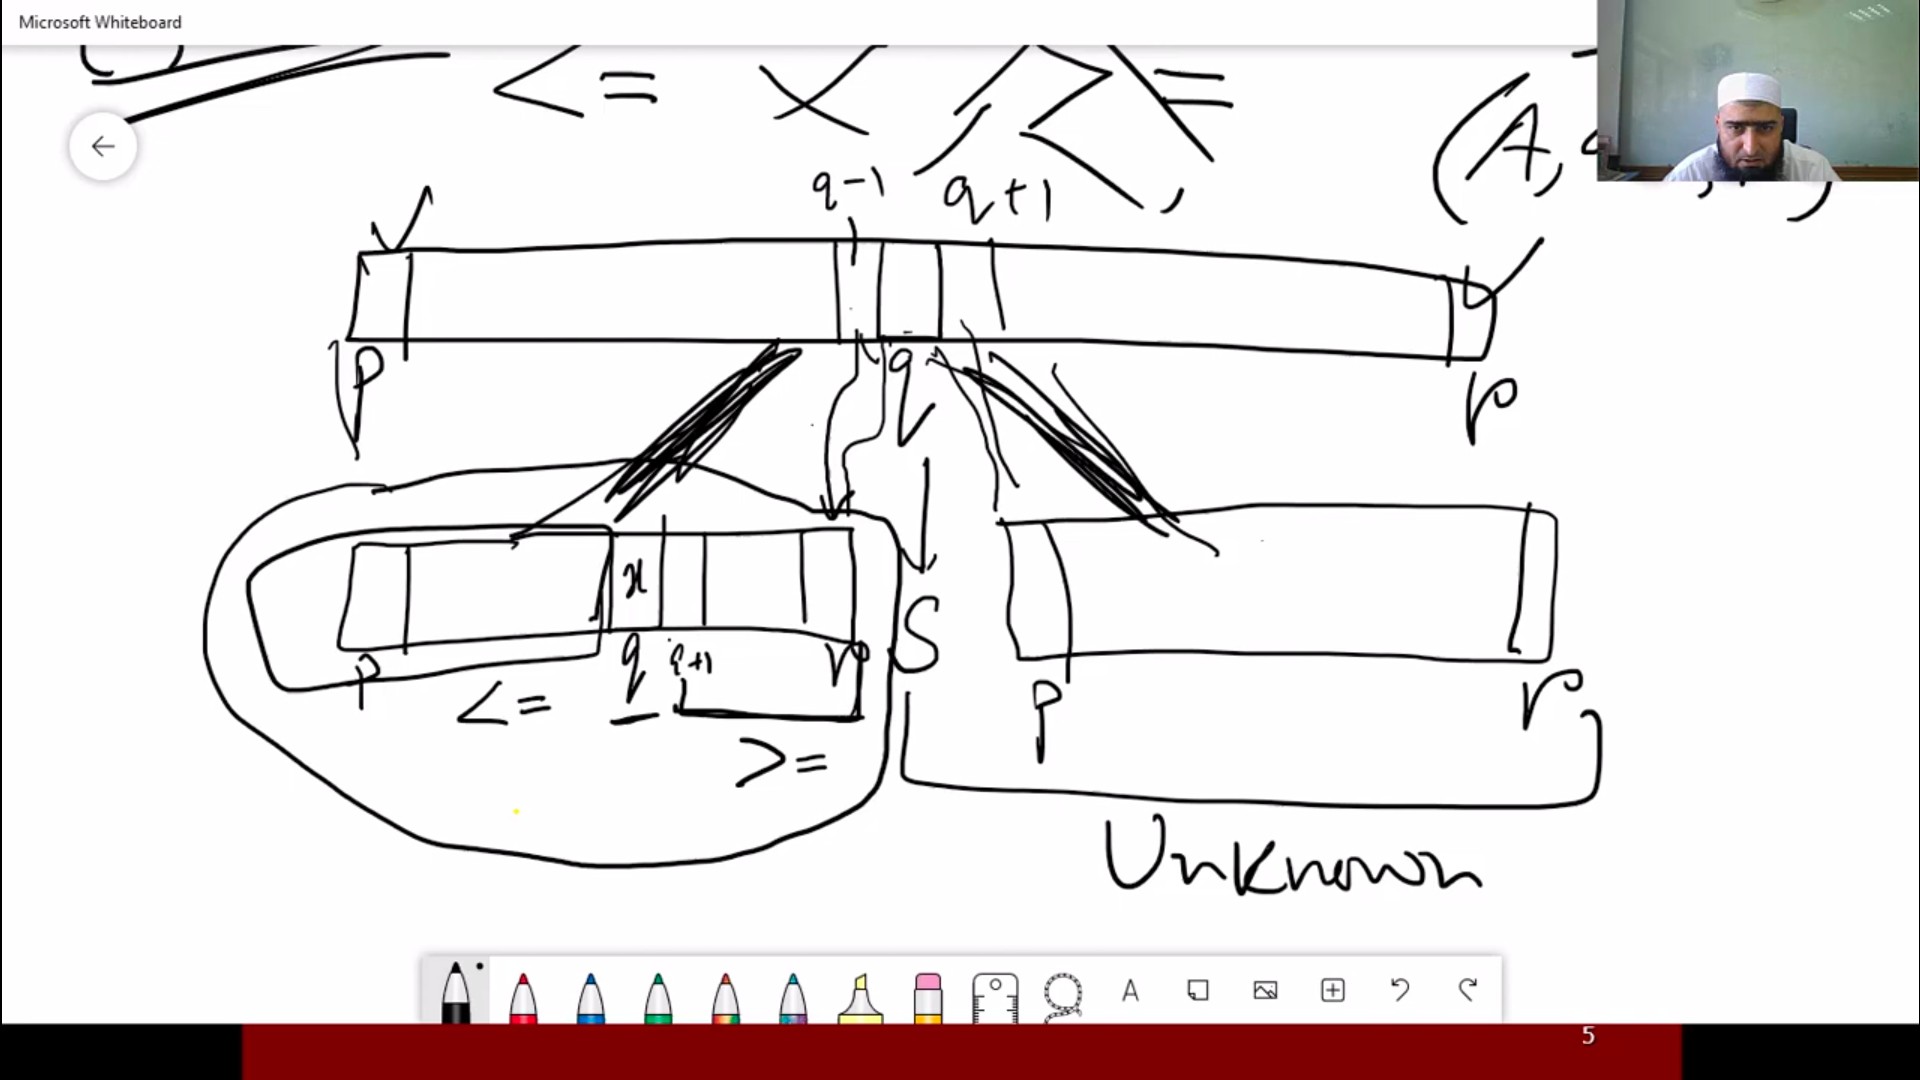 Microsoft Whiteboard
<= x =
(A,
q-1 q+1 ,
p q r
S
x
p q q+1 r
<= >=
p r
Unknown
A
5